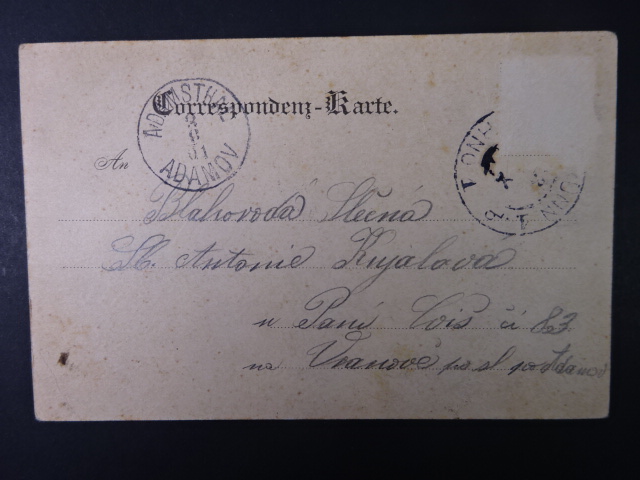 Correspondenz-Karte.
ADAMSTHAL
ADAMOV
An
Blahorodá Slečná
Sl. Antonie Kujalová
u Paní čí 83
na Vranově p. Adamov